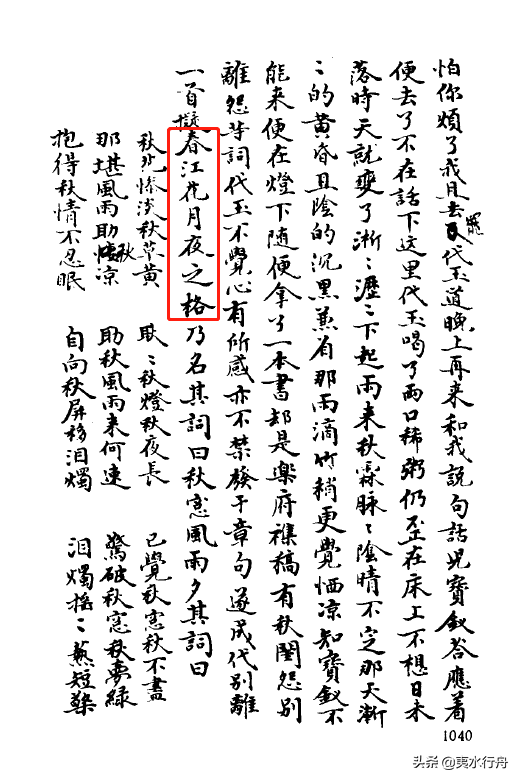 怕你煩了我且去罷代玉道晚上再来和我説句話児寳釵荅應着
便去了不在話下这里代玉喝了兩口稀粥仍歪在床上不想日未
落時天就變了淅〻瀝〻下起雨来秋霖脉〻陰晴不定那天漸
〻的黄昏且陰的沉黑兼着那雨滴竹稍更覺恓凉知寳釵不
能来便在燈下随便拿了一本書却是楽府襍稿有秋閨怨别
離怨等詞代玉不覺心有所感亦不禁發于章句遂成代别離
一首擬春江花月夜之格乃名其詞曰秋窓風雨夕其詞曰
秋花惨淡秋草黄 耿〻秋燈秋夜長 已覺秋窓秋不盡
那堪風雨助秋凉 助秋風雨来何速 驚破秋窓秋夢緑
抱得秋情不忍眠 自向秋屏移泪燭 泪燭摇〻爇短檠
1040
头条 @夷水行舟